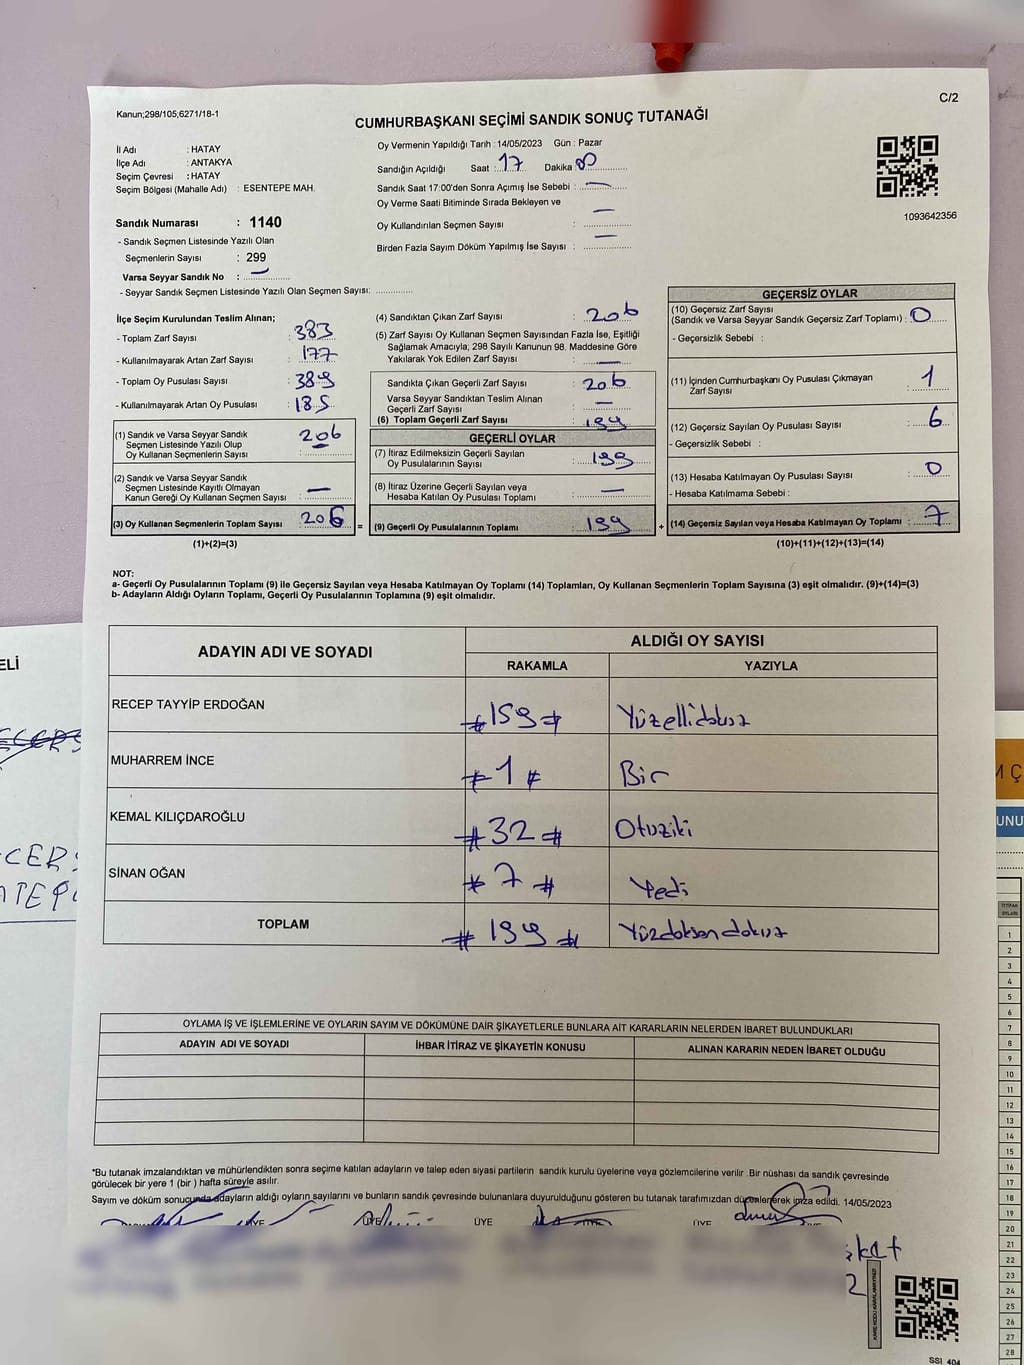 C/2
Kanun;298/105;6271/18-1
CUMHURBAŞKANI SEÇİMİ SANDIK SONUÇ TUTANAĞI
İl Adı : HATAY
İlçe Adı : ANTAKYA
Seçim Çevresi : HATAY
Seçim Bölgesi (Mahalle Adı) : ESENTEPE MAH.
Sandık Numarası : 1140
- Sandık Seçmen Listesinde Yazılı Olan
Seçmenlerin Sayısı : 299
Varsa Seyyar Sandık No : —
- Seyyar Sandık Seçmen Listesinde Yazılı Olan Seçmen Sayısı:
Oy Vermenin Yapıldığı Tarih : 14/05/2023 Gün : Pazar
Sandığın Açıldığı Saat : 17 Dakika :
Sandık Saat 17:00'den Sonra Açımış İse Sebebi : —
Oy Verme Saati Bitiminde Sırada Bekleyen ve
Oy Kullandırılan Seçmen Sayısı : —
Birden Fazla Sayım Döküm Yapılmış İse Sayısı : —
1093642356
İlçe Seçim Kurulundan Teslim Alınan;
- Toplam Zarf Sayısı : 383
- Kullanılmayarak Artan Zarf Sayısı : 177
- Toplam Oy Pusulası Sayısı : 389
- Kullanılmayarak Artan Oy Pusulası : 185
(1) Sandık ve Varsa Seyyar Sandık
Seçmen Listesinde Yazılı Olup
Oy Kullanan Seçmenlerin Sayısı : 206
(2) Sandık ve Varsa Seyyar Sandık
Seçmen Listesinde Kayıtlı Olmayan
Kanun Gereği Oy Kullanan Seçmen Sayısı : —
(3) Oy Kullanan Seçmenlerin Toplam Sayısı : 206 =
(1)+(2)=(3)
(4) Sandıktan Çıkan Zarf Sayısı : 206
(5) Zarf Sayısı Oy Kullanan Seçmen Sayısından Fazla İse, Eşitliği
Sağlamak Amacıyla; 298 Sayılı Kanunun 98. Maddesine Göre
Yakılarak Yok Edilen Zarf Sayısı : —
Sandıkta Çıkan Geçerli Zarf Sayısı : 206
Varsa Seyyar Sandıktan Teslim Alınan
Geçerli Zarf Sayısı : —
(6) Toplam Geçerli Zarf Sayısı : 199
GEÇERLİ OYLAR
(7) İtiraz Edilmeksizin Geçerli Sayılan
Oy Pusulalarının Sayısı : 199
(8) İtiraz Üzerine Geçerli Sayılan veya
Hesaba Katılan Oy Pusulası Toplamı : —
(9) Geçerli Oy Pusulalarının Toplamı : 199 +
GEÇERSİZ OYLAR
(10) Geçersiz Zarf Sayısı
(Sandık ve Varsa Seyyar Sandık Geçersiz Zarf Toplamı) : 0
- Geçersizlik Sebebi :
(11) İçinden Cumhurbaşkanı Oy Pusulası Çıkmayan
Zarf Sayısı : 1
(12) Geçersiz Sayılan Oy Pusulası Sayısı : 6
- Geçersizlik Sebebi :
(13) Hesaba Katılmayan Oy Pusulası Sayısı : 0
- Hesaba Katılmama Sebebi :
(14) Geçersiz Sayılan veya Hesaba Katılmayan Oy Toplamı : 7
(10)+(11)+(12)+(13)=(14)
NOT:
a- Geçerli Oy Pusulalarının Toplamı (9) ile Geçersiz Sayılan veya Hesaba Katılmayan Oy Toplamı (14) Toplamları, Oy Kullanan Seçmenlerin Toplam Sayısına (3) eşit olmalıdır. (9)+(14)=(3)
b- Adayların Aldığı Oyların Toplamı, Geçerli Oy Pusulalarının Toplamına (9) eşit olmalıdır.
ADAYIN ADI VE SOYADI ALDIĞI OY SAYISI
RAKAMLA YAZIYLA
RECEP TAYYİP ERDOĞAN #159# Yüzellidokuz
MUHARREM İNCE #1# Bir
KEMAL KILIÇDAROĞLU #32# Otuziki
SİNAN OĞAN #7# Yedi
TOPLAM #199# Yüzdoksandokuz
OYLAMA İŞ VE İŞLEMLERİNE VE OYLARIN SAYIM VE DÖKÜMÜNE DAİR ŞİKAYETLERLE BUNLARA AİT KARARLARIN NELERDEN İBARET BULUNDUKLARI
ADAYIN ADI VE SOYADI İHBAR İTİRAZ VE ŞİKAYETİN KONUSU ALINAN KARARIN NEDEN İBARET OLDUĞU
*Bu tutanak imzalandıktan ve mühürlendikten sonra seçime katılan adayların ve talep eden siyasi partilerin sandık kurulu üyelerine veya gözlemcilerine verilir .Bir nüshası da sandık çevresinde
görülecek bir yere 1 (bir ) hafta süreyle asılır.
Sayım ve döküm sonucunda adayların aldığı oyların sayılarını ve bunların sandık çevresinde bulunanlara duyurulduğunu gösteren bu tutanak tarafımızdan düzenlenerek imza edildi. 14/05/2023
ÜYE ÜYE ÜYE ÜYE ÜYE
SSI. 404
ELİ
M Ç
UNU
1
2
3
4
5
6
7
8
9
10
11
12
13
14
15
16
17
18
19
20
21
22
23
24
25
26
27
28